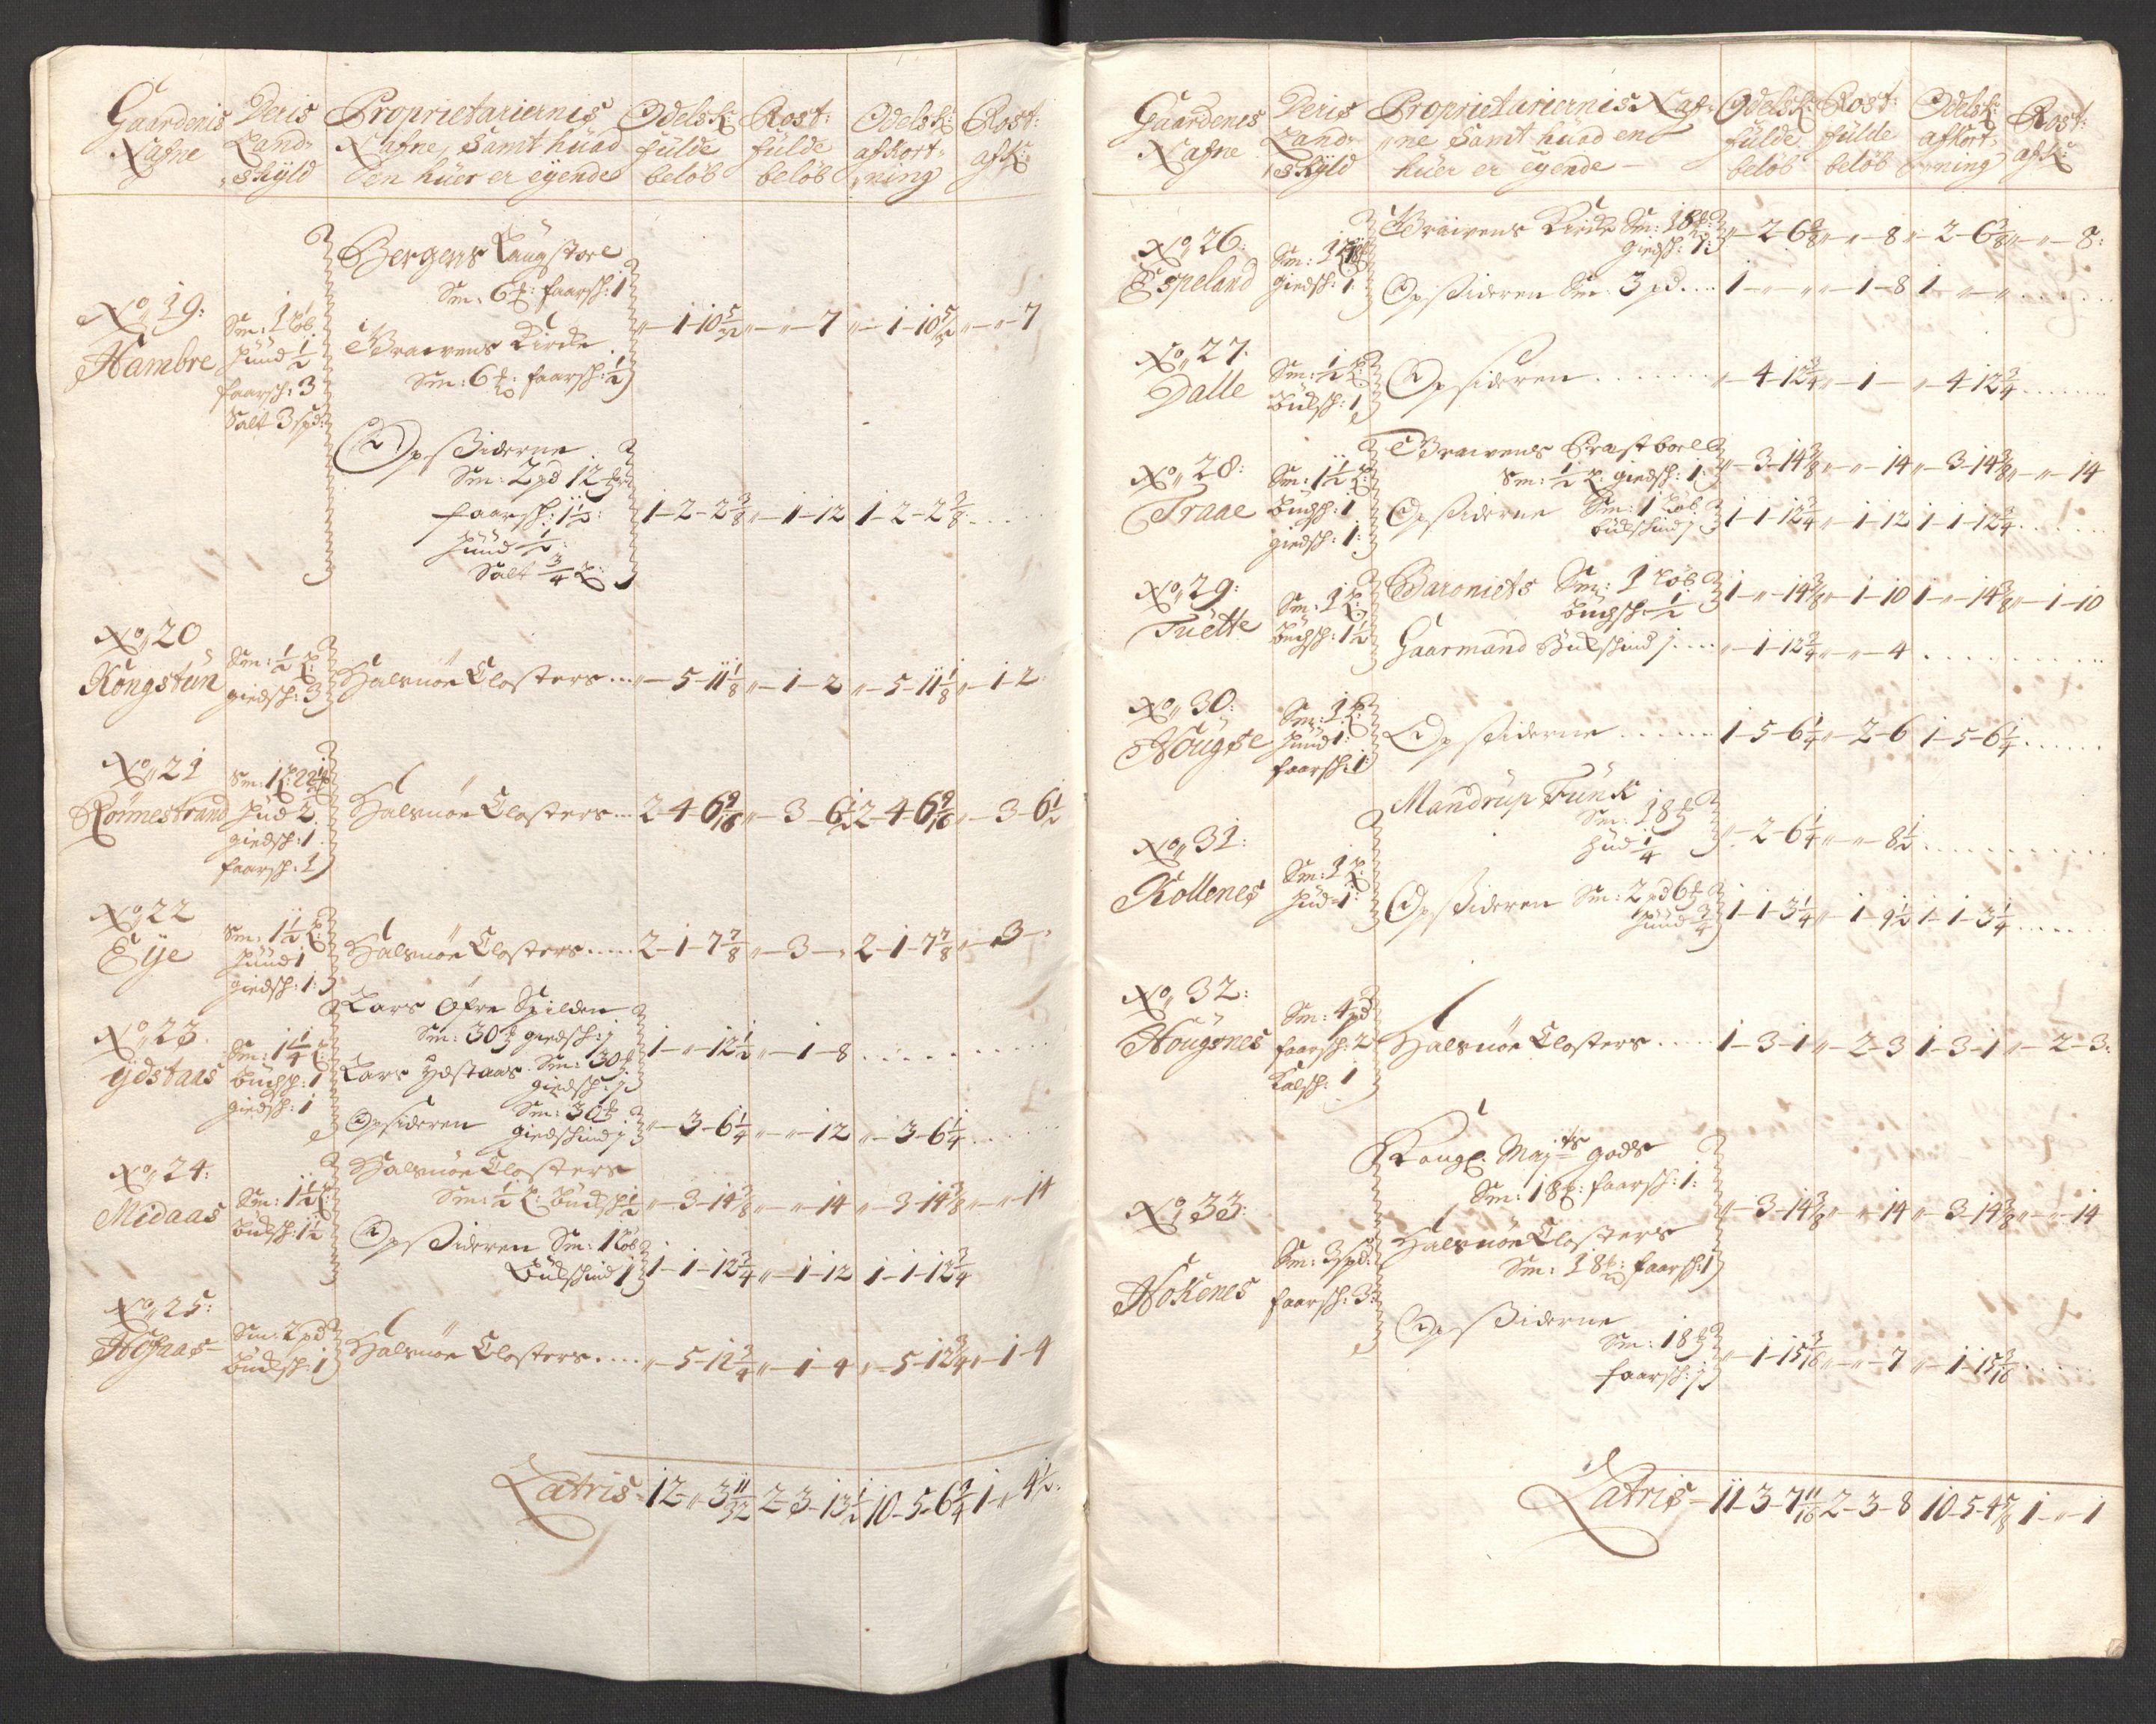 Gaardenis Nafne | Deris Land-skÿld | Proprietariernis Nafne, Samt huad en huer er eÿende | Odelsk: fulde beløb | Rost: fulde beløb | Odelsk: afkort-ning | Rost: afk:
No 19: Hambre
Sm: 1 løb
huud 1/2
faarsk: 3
Salt 3 spd:
Bergens Laugstoel
Sm: 6 faarsk: 1
Graevens Kircke
Sm: 6 faarsk: 1/2
„-1-10 5/32 „-„-7 „-1-10 5/32 „-„-7
Opsidderne
Sm: 2 pd 12
faarsk: 1 1/2:
huud 1/2:
Salt 3/4
1-2-2 3/8 „-1-12 1-2-2 3/8
No 20 Kongstun
Sm: 1/2
giedsk: 3
Halsnöe Closters „-5-11 1/8 „-1-2 „-5-11 1/8 „-1-2
No 21 Rönnestrand
Sm: 1 22 1/2
hud 2
giedsk: 1
faarsk: 1
Halsnöe Closters 2-4-6 9/16 „-3-6 1/2 2-4-6 9/16 „-3-6 1/2
No 22 Eÿe
Sm: 1 1/2
huud 1
giedsk: 1:
Halsnöe Closters 2-1-7 7/8 „-3-„ 2-1-7 7/8 „-3-„
No 23. ÿdstaas
Sm: 1 1/4
buchsk: 1
giedsk: 1
Lars Öfre Spilden
Sm: 30 giedsk: j
Lars Ÿdstaas Sm: 30
giedsk: j
1-„-12 1/2 „-1-8
Opsidderen Sm: 30
giedskind j
„-3-6 1/4 „-„-12 „-3-6 1/4
No 24: Midaas
Sm: 1 1/2
buksk: 1 1/2
Halsnöe Closters
Sm: 1/2 buksk 1/2 „-3-14 3/8 „-„-14 „-3-14 3/8 „-„-14
Opsidderen Sm: 1 løb
Bukskind 1 1-1-12 3/4 „-1-12 1-1-12 3/4
No 25:
Sm: 2 pd
buksk: 1
Halsnöe Closters „-5-12 3/4 „-1-4 „-5-12 3/4 „-1-4
Latris 12-„-3 11/32 2-3-13 1/2 10-5-6 3/4 1-„-4 1/2
Gaardenes Nafne | Deris Land-skÿld | Proprietariernis Naf-ne Samt huad en huer er eÿende | Odelsk: fulde beløb | Rost: fulde beløb | Odelsk: afkort-ning | Rost: afk:
No 26: Espeland
giedsk: 1:
Graevens Kircke Sm: 18
giedsk: 1:
„-2-6 3/8 „-„-8 „-2-6 3/8 „-„-8:
Opsidderen Sm: 3 pd 1-„-„ „-1-8 1-„-„
No 27. Dalle
Sm: 1/2
buksk: 1
Opsidderen „-4-12 3/4 „-1-„ „-4-12 3/4
No 28: Traae
Sm: 1 1/2
buchsk: 1
giedsk: 1:
Graevens Præstboel
Sm: 1/2 giedsk: 1: „-3-14 3/8 „-„-14 „-3-14 3/8 „-„-14
Opsidderne Sm: 1 løb
bukskind j
1-1-12 3/4 „-1-12 1-1-12 3/4
No 29: Tuette
Sm: 1
buchsk: 1 1/2
Baroniets Sm: 1 løb
buchsk: 1/2
1-„-14 3/8 „-1-10 1-„-14 3/8 „-1-10
Gaarmand Bukskind j „-1-12 3/4 „-„-4
No 30: Hougse
Sm: 1
huud 1:
faarsk: 1
Opsidderne 1-5-6 1/4 „-2-6 1-5-6 1/4
No 31: Kollenes
Sm: 1
hud 1:
Mandrup Funk
Sm: 18
hud 1/4
„-2-6 1/4 „-„-8 1/2
Opsidderen Sm: 2 pd 6
huud 3/4
1-1-3 1/4 „-1-9 1/2 1-1-3 1/4
No 32: Hougsnes
Sm: 4 pd
faarsk: 2
Kalsk: 1
Halsnöe Closters 1-3-1 „-2-3 1-3-1 „-2-3:
No 33: Hokenes
Sm: 3 spd:
faarsk: 3:
Kongl: Maj:ts gods
Sm: 18 faarsk: 1:
Halsnöe Closters
Sm: 18 faarsk: 1
„-3-14 3/8 „-„-14 „-3-14 3/8 „-„-14
Opsidderne
Sm: 18
faarsk: j
„-1-15 3/16 „-„-7 „-1-15 3/16
Latris 11-3-7 11/16 2-3-8 10-5-4 5/8 1-„-1